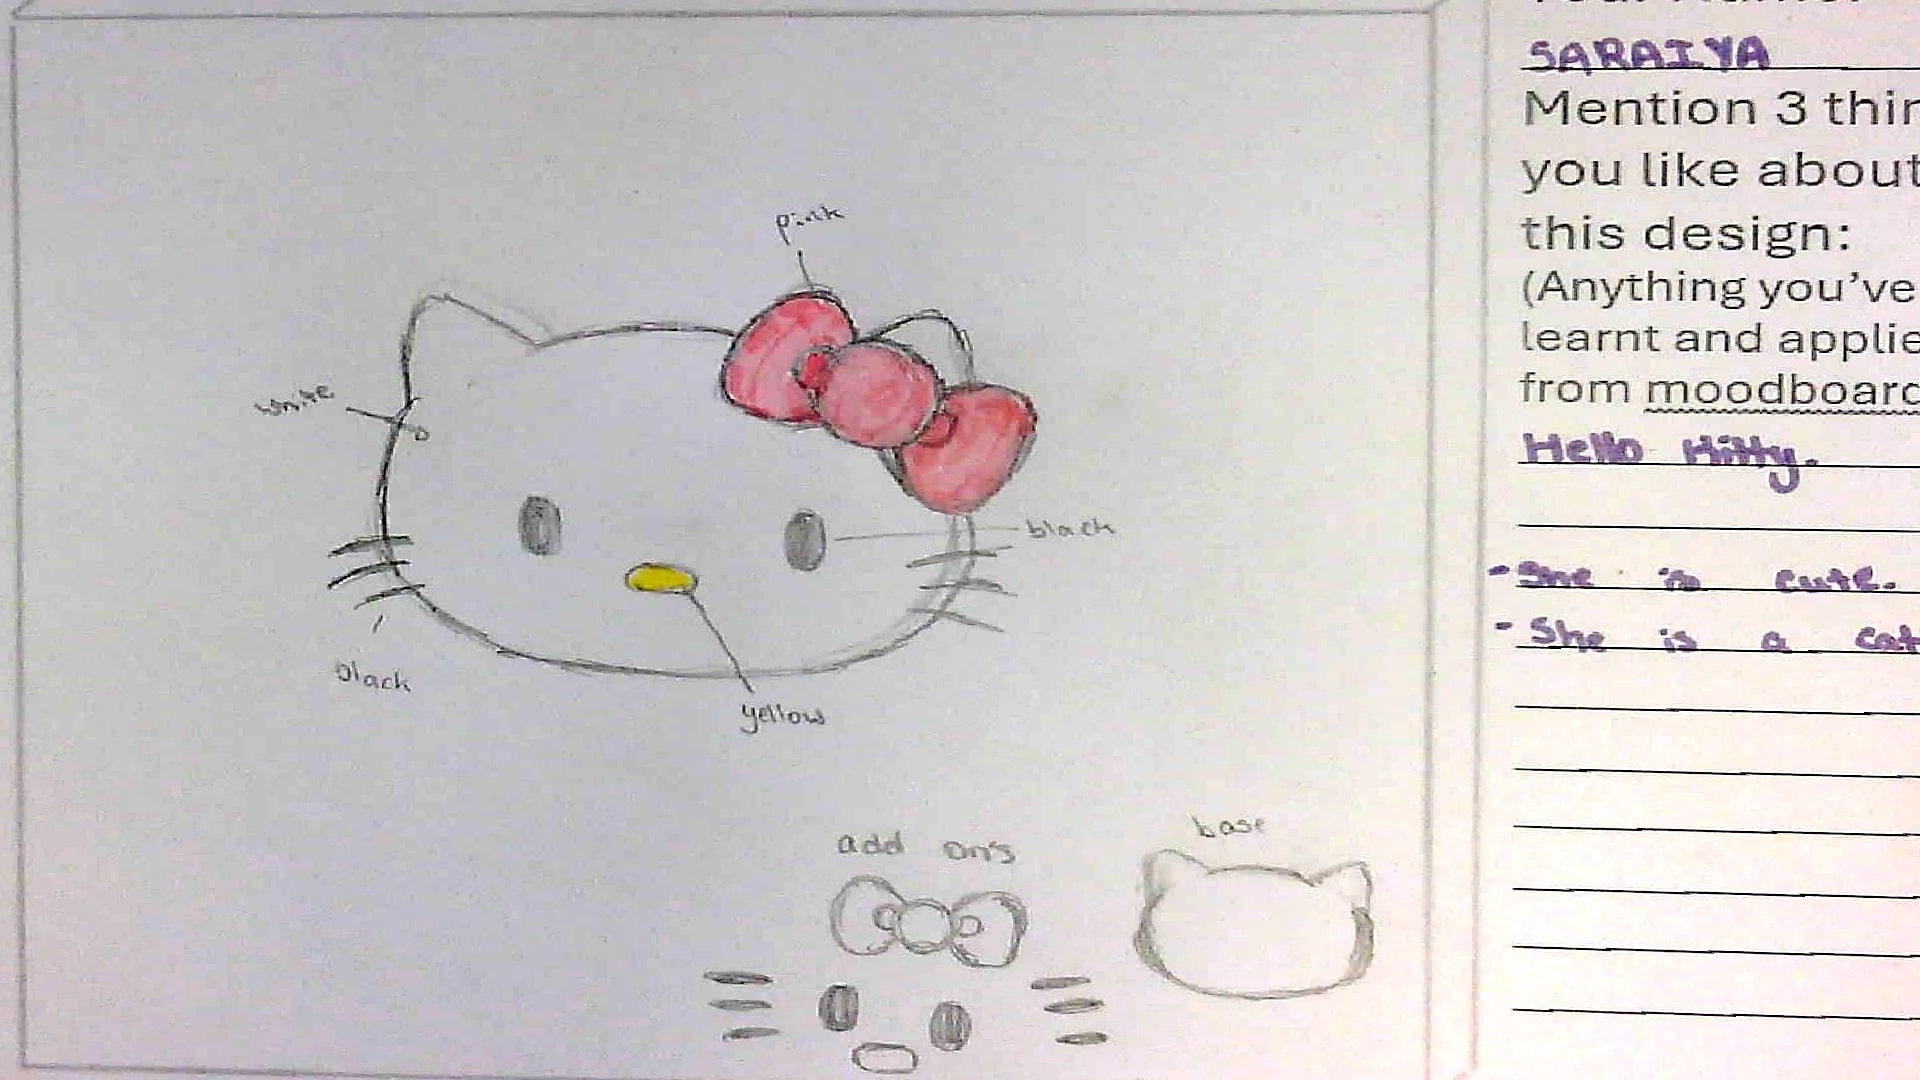 pink
white
black
black
yellow
add on's
base
SARAIYA
Mention 3 thin
you like about
this design:
(Anything you've
learnt and applie
from moodboard
Hello Kitty.
- She is cute.
- She is a cat